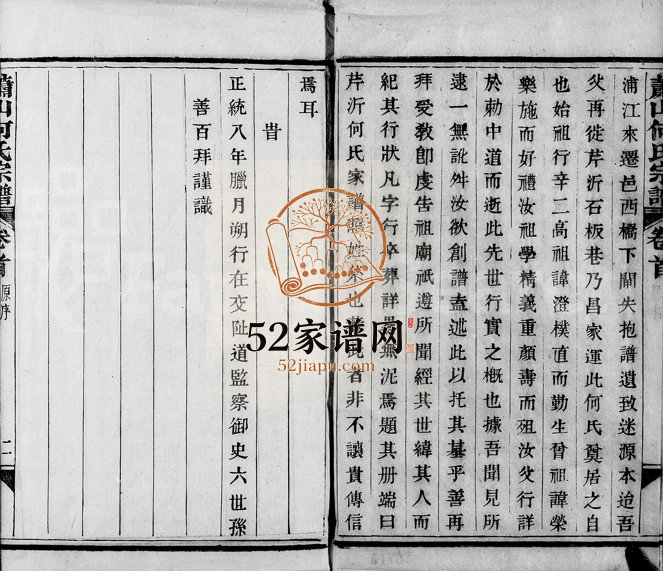 蕭山何氏宗譜 卷首
浦江來遷邑西橋下關失抱譜遺致迷源本迨吾
父再徙芹沂石板巷乃昌家運此何氏奠居之自
也始祖行辛二高祖諱澄樸直而勤生曾祖諱榮
樂施而好禮汝祖學精義重顏壽而殂汝父行詳
於勅中道而逝此先世行實之概也據吾聞見所
逮一無訛舛汝欲創譜盍述此以托其基乎善再
拜受敎卽虔告祖廟祇遵所聞經其世緯其人而
紀其行狀凡字行卒葬詳畧無泥焉題其册端曰
芹沂何氏家譜 姓 也 者非不讓貴傳信
焉耳
旹
正統八年臘月朔行在交趾道監察御史六世孫
善百拜謹識
蕭山何氏宗譜 卷首 原序 二
52家谱网
52jiapu.com